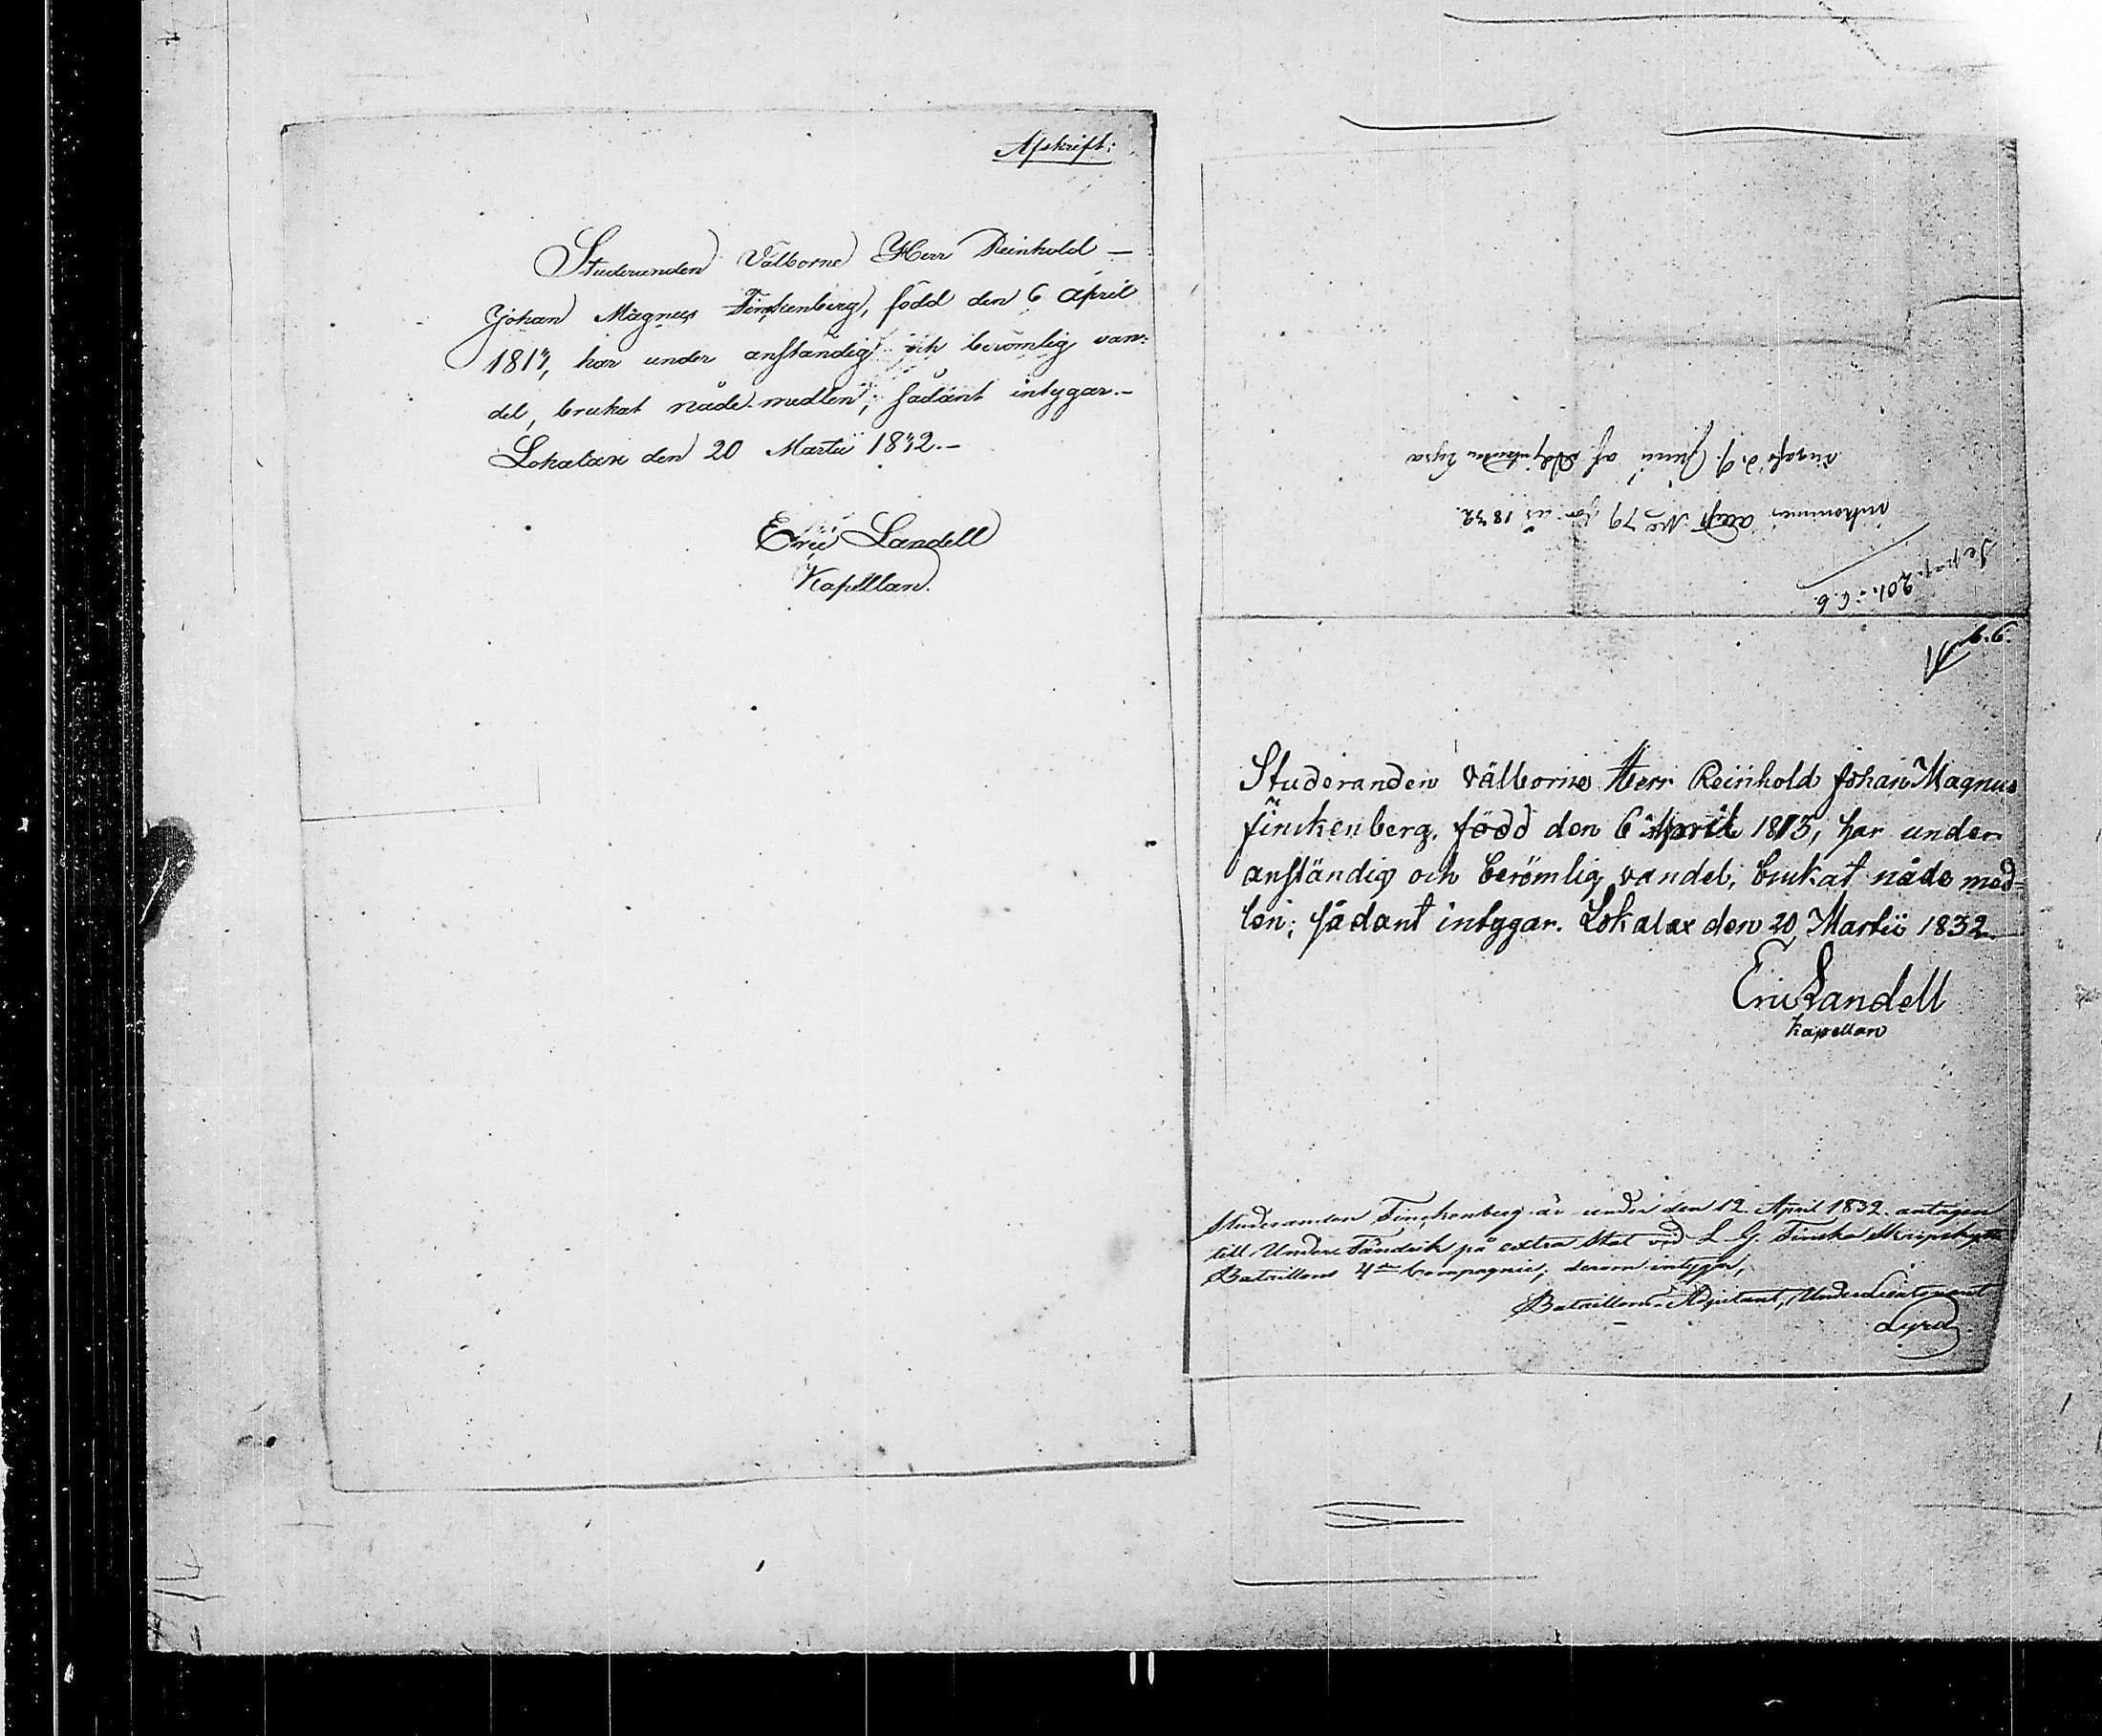 Afskrift:
Studeranden Välborne Herr Reinhold —
Johan Magnus Finckenberg, född den 6 April
1813, har under anständig och berömlig van-
del, brukat nåde-medlen; sådant intygar.—
Lokalax den 20 Martii 1832.—
Eric Landell
Kapellan.
inkommen No 79 för år 1832.
d. 9. Junii af Adjutanten Lyra
b.6.
Studeranden Välborne Herr Reinhold Johan Magnus
Finckenberg, född den 6 April 1813, har under
anständig och berömlig vandel, brukat nåde med-
len; sådant intygar. Lokalax den 20 Martii 1832.—
Eric Landell
Kapellan
Studeranden Finckenberg är under den 12 April 1832 antagen
till Under-Fändrik på extra stat vid L. G. Finska Skarpskytte
Bataillons 4de Compagnie; derom intygar,
Bataillons-Adjutant, UnderLieutenant
Lyra